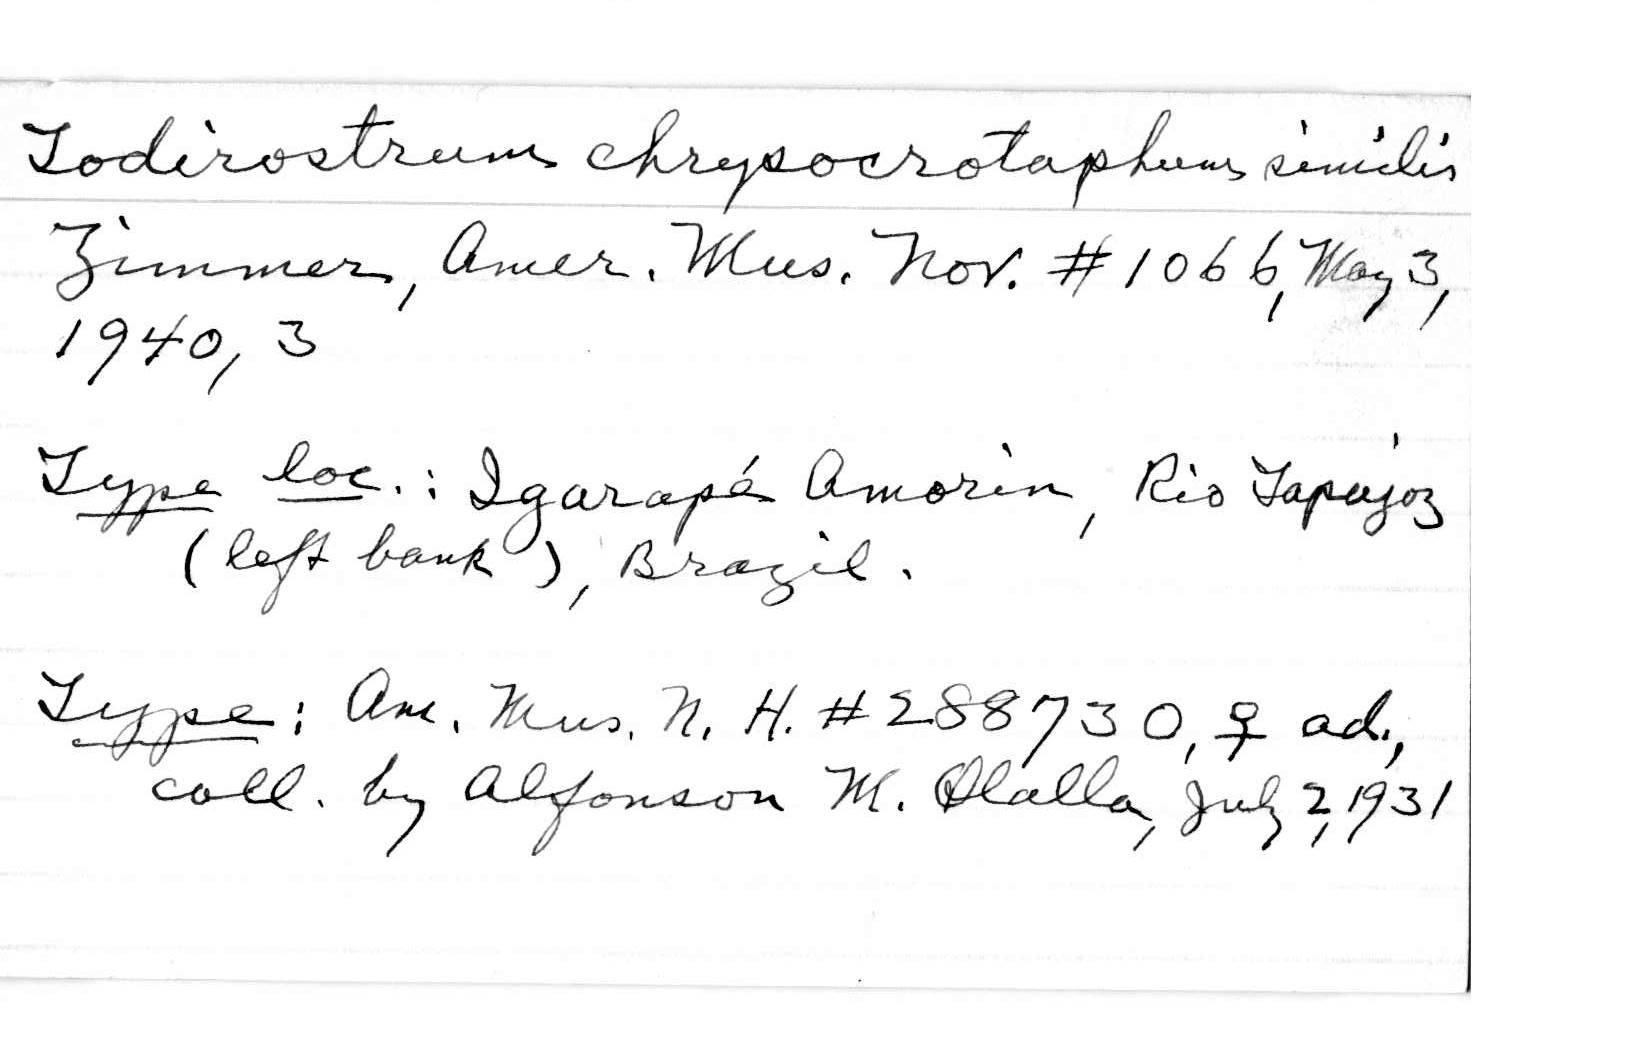 Todirostrum chrysocrotaphum similis
Zimmer, Amer. Mus. Nov. #1066, May 3,
1940, 3
Type loc.: Igarapé Amorin, Rio Tapajoz
(left bank), Brazil.
Type: Am. Mus. N. H. #288730, ♀ ad.,
coll. by Alfonson M. Olalla, July 2, 1931